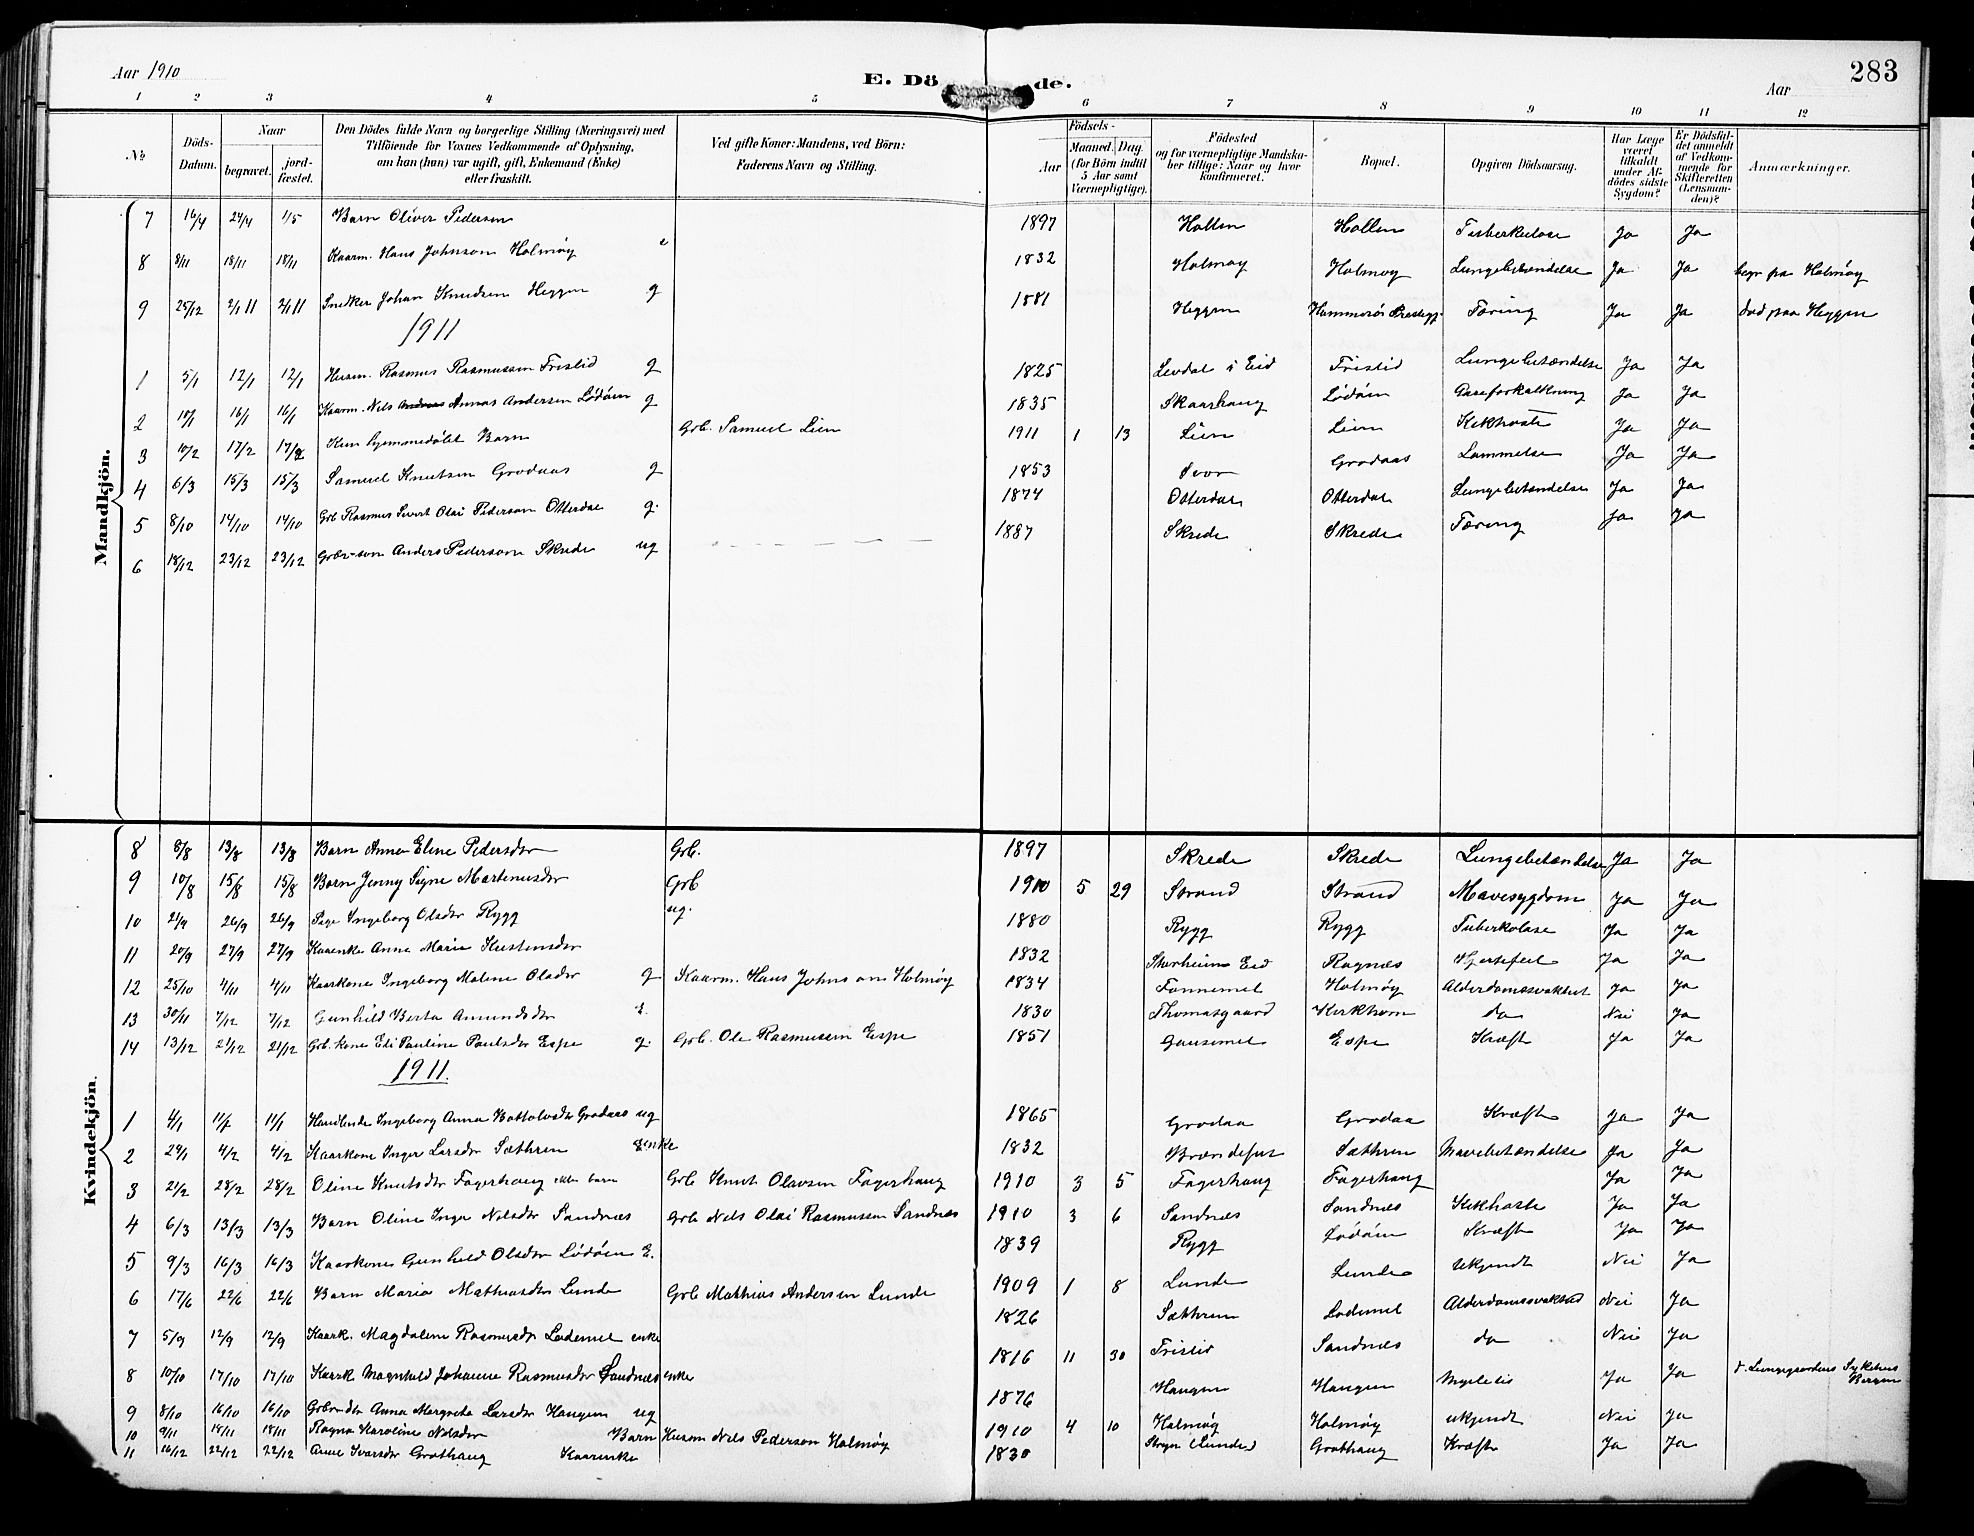 Aar 1910 E. Dö de. Aar 283
1 2 3 4 5 6 7 8 9 10 11 12
No. Döds-Datum. Naar begravet. jordfæstet. Den Dödes fulde Navn og borgerlige Stilling (Næringsvei) med Tilföiende for Voxnes Vedkommende af Oplysning, om han (hun) var ugift, gift, Enkemand (Enke) eller fraskilt. Ved gifte Koner: Mandens, ved Börn: Faderens Navn og Stilling. Födsels- Aar Maaned. Dag. (for Börn indtil 5 Aar samt Værnepligtige). Födested og for værnepligtige Mandskaber tillige: Naar og hvor konfirmeret. Bopæl. Opgiven Dödsaarsag. Har Læge været tilkaldt under Afdödes sidste Sygdom? Er Dödsfaldet anmeldt af Vedkommende for Skifteretten (Lensmanden)? Anmærkninger.
Mandkjön.
7 16/4 24/4 1/5 Barn Oliver Pedersen 1897 Hollen Hollen Tuberkulose Ja Ja
8 8/11 18/11 18/11 Kaarm. Hans Johnson Holmøy e 1832 Holmøy Holmøy Lungebetændelse Ja Ja begr paa Holmøy
9 25/12 2/1 11 2/1 11 Snedker Johan Knudsen Heggen g 1881 Heggen Hammerøs Prestegj. Tæring Ja Ja død paa Heggen
1911
1 5/1 12/1 12/1 Husm. Rasmus Rasmussen Fristid g 1825 Levdal i Eid Fristid Lungebetændelse Ja Ja
2 10/1 16/1 16/1 Kaarm. Nils Annas Andersen Lødøen g 1835 Skaarhaug Lødøen Aareforkalkning Ja Ja
3 10/2 17/2 17/2 Kun hjemmedøbt Barn Grb. Samuel Lien 1911 1 13 Lien Lien Kikhoste Ja Ja
4 6/3 15/3 15/3 Samuel Knutsen Grodaas g 1853 Grodaas Lammelse Ja Ja
5 8/10 14/10 14/10 Grb Rasmus Sivert Olai Pederson Otterdal g. 1874 Otterdal Otterdal Lungebetændelse Ja Ja
6 18/12 23/12 23/12 Grbr-søn Anders Pederson Skrede ug 1887 Skrede Skrede Tæring Ja Ja
Kvindekjön.
8 8/8 13/8 13/8 Barn Anna Eline Pedersdtr Grb. 1897 Skrede Skrede Lungebetændelse Ja Ja
9 10/8 15/8 15/8 Barn Jenny Signe Martenusdtr Grb 1910 5 29 Strand Strand Mavesygdom Ja Ja
10 21/9 26/9 26/9 Pige Ingeborg Olsdtr Rygg ug. 1880 Rygg Rygg Tuberkolose Ja Ja
11 20/9 27/9 27/9 Kaarenke Anne Marie Kustensdtr 1832 Storheim Eid Ragnæs Hjertefeil Ja Ja
12 25/10 4/11 4/11 Kaarkone Ingeborg Malene Olsdtr g Kaarm. Hans Johnson Holmøy 1834 Tonnemel Holmøy Alderdomssvakhet Ja Ja
13 30/11 7/12 7/12 Gunhild Berta Amundsdtr E. 1830 Thomasgaard Kirkhorn do Nei Ja
14 13/12 21/12 21/12 Grb. kone Eli Pauline Paulsdtr Espe g. Grb. Ole Rasmussen Espe 1851 Gausemel Espe Kræft Ja Ja
1911.
1 4/1 11/1 11/1 Handlende Ingeborg Anna Bottolvsdtr Grodaas ug 1865 Grodaa Grodaa Kræft Ja Ja
2 29/1 4/2 4/2 Kaarkone Inger Larsdtr Sæthren Enke 1832 Sæthren Mavebetændelse Ja Ja
3 21/2 28/2 28/2 Oline Knutsdtr Fagerhaug barn Grb Knut Olavsen Fagerhaug 1910 3 5 Fagerhaug Fagerhaug Ja Ja
4 6/3 13/3 13/3 Barn Oline Inga Nilsdtr Sandnæs Grb Nils Olai Rasmussen Sandnæs 1910 3 6 Sandnæs Sandnæs Kikhoste Ja Ja
5 9/3 16/3 16/3 Kaarkone Gunhild Olsdtr Lødøen E. 1839 Rygg Lødøen Kræft Ja Ja
6 17/6 22/6 22/6 Barn Maria Mathiasdtr Lunde Grb Mathias Andersen Lunde 1909 1 8 Lunde Lunde Ukjendt Nei Ja
7 5/9 12/9 12/9 Kaark. Magdalene Rasmusdtr Lødemel enke 1826 Sæthren Lødemel Alderdomssvakhed Nei Ja
8 10/10 17/10 17/10 Kaark Magnhild Johanne Rasmusdtr Sandnæs enke 1816 11 30 Fristid Sandnæs do Nei Ja
9 8/10 16/10 16/10 Grbrdtr Anna Margreta Larsdtr Haugen ug 1876 Haugen Haugen Myelitis Ja Ja d. Lungegaardens Sykehus Bergen
10 9/11 18/11 18/11 Ragna Karoline Nilsdtr Barn Husm Nils Pederson Holmøy 1910 4 10 Holmøy Holmøy ukjendt Nei Ja
11 16/12 22/12 22/12 Anne Ivarsdtr Grothaug Kaarenke 1830 Stryn Grothaug Kræft Ja Ja